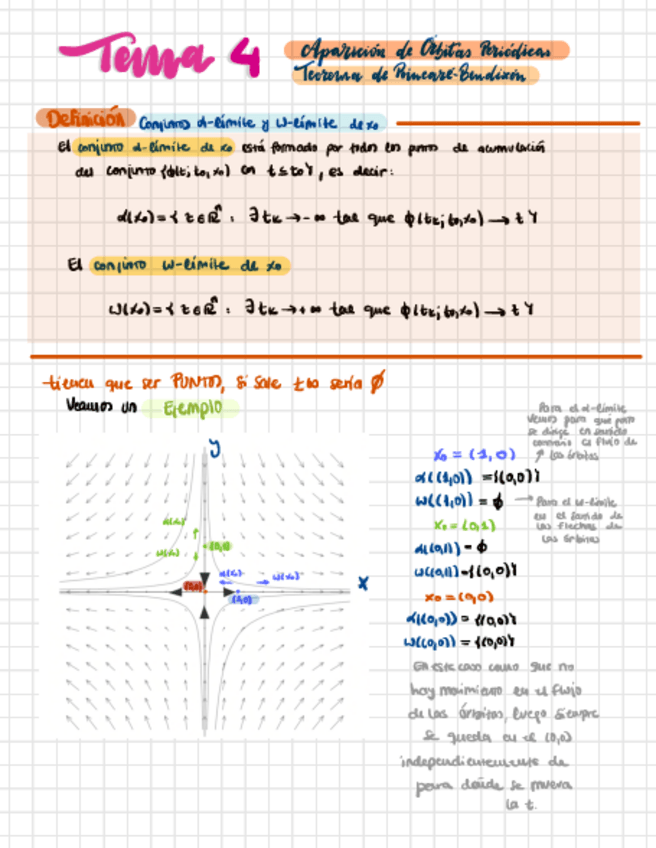 Tema 4
Aparición de Órbitas Periódicas
Teorema de Poincaré-Bendixon
Definición Conjuntos α-límite y ω-límite de x₀
El conjunto α-límite de x₀ está formado por todos los puntos de acumulación
del conjunto {ϕ(t; t₀, x₀) con t≤t₀}, es decir:
α(x₀) = { z ∈ ℝⁿ : ∃ tₖ → -∞ tal que ϕ(tₖ; t₀, x₀) → z }
El conjunto ω-límite de x₀
ω(x₀) = { z ∈ ℝⁿ : ∃ tₖ → +∞ tal que ϕ(tₖ; t₀, x₀) → z }
tienen que ser PUNTOS, si sale ±∞ sería ∅
Veamos un Ejemplo
Para el α-límite
vemos para qué punto
se dirige en sentido
contrario al flujo de
las órbitas
x₀ = (1,0)
α((1,0)) = {(0,0)}
ω((1,0)) = ∅
Para el ω-límite
en el sentido de
las flechas de
las órbitas
x₀ = (0,1)
α((0,1)) = ∅
ω((0,1)) = {(0,0)}
x₀ = (0,0)
α((0,0)) = {(0,0)}
ω((0,0)) = {(0,0)}
y
α(x₀)
ω(x₀)
(0,1)
α(x₀)
ω(x₀)
(0,0)
(1,0)
x
En este caso como que no
hay movimiento en el flujo
de las órbitas, luego siempre
se queda en el (0,0)
independientemente de
para dónde se mueva
la t.